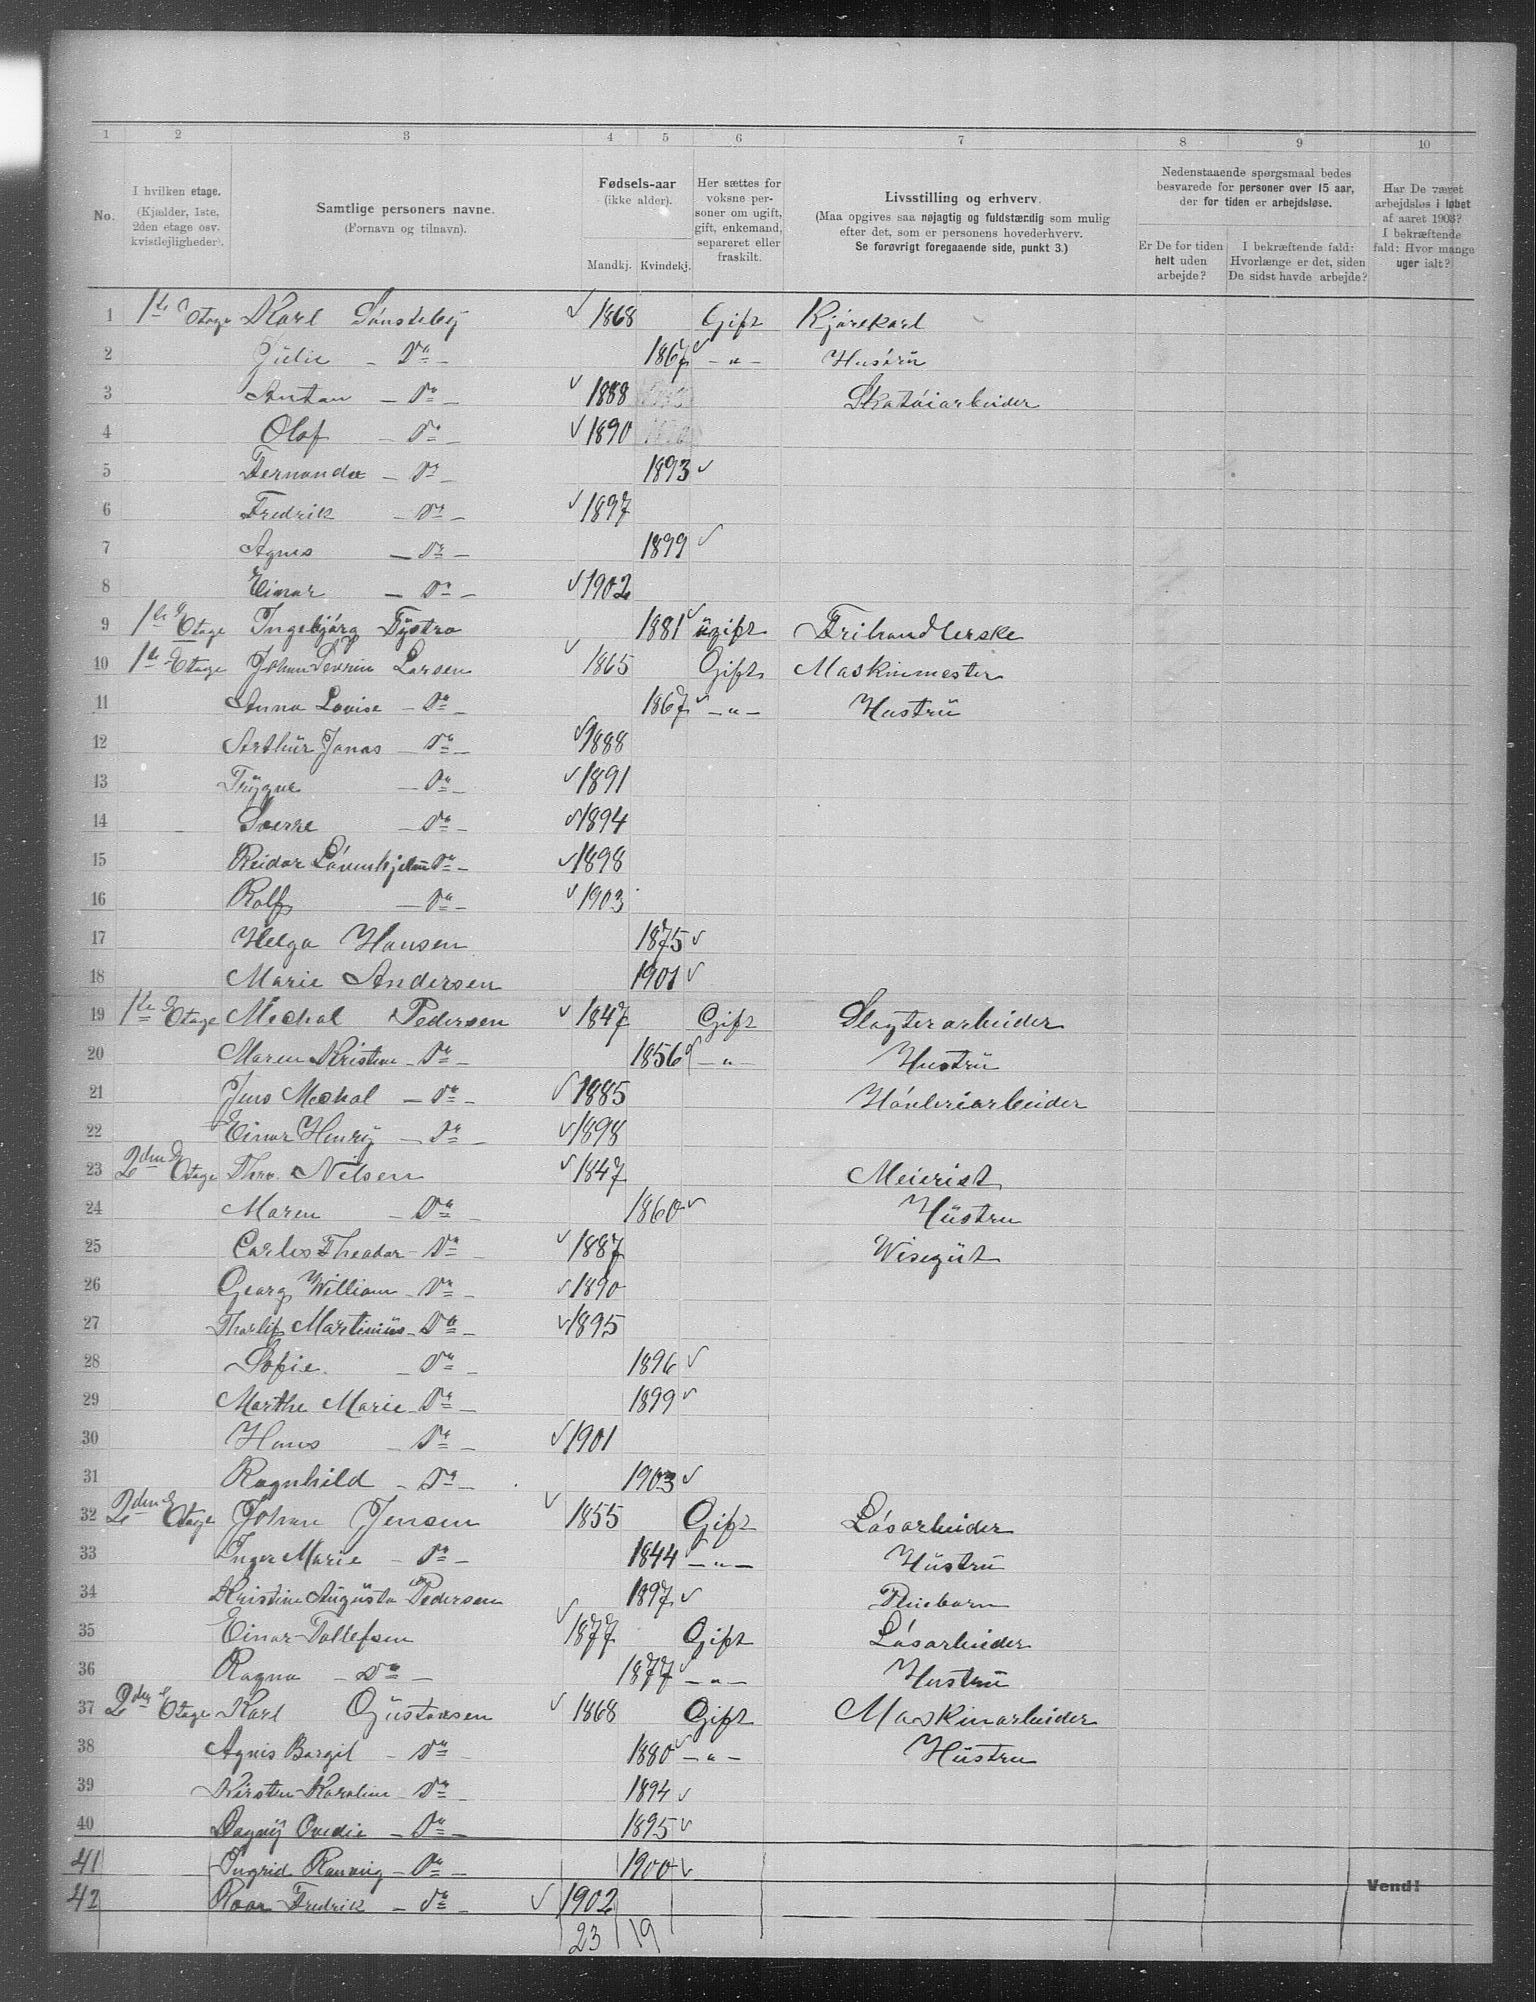 1 2 3 4 5 6 7 8 9 10
No.
I hvilken etage.
(Kjælder, 1ste,
2den etage osv.
kvistlejligheder).
Samtlige personers navne.
(Fornavn og tilnavn).
Fødsels-aar
(ikke alder).
Mandkj. Kvindekj.
Her sættes for
voksne per-
soner om ugift,
gift, enkemand,
separeret eller
fraskilt.
Livsstilling og erhverv.
(Maa opgives saa nøjagtig og fuldstændig som mulig
efter det, som er personens hovederhverv.
Se forøvrigt foregaaende side, punkt 3.)
Nedenstaaende spørgsmaal bedes
besvarede for personer over 15 aar,
der for tiden er arbejdsløse.
Er De for tiden
helt uden
arbejde?
I bekræftende fald:
Hvorlænge er det, siden
De sidst havde arbejde?
Har De været
arbejdsløs i løbet
af aaret 1903?
I bekræftende
fald: Hvor mange
uger ialt?
1 1ste Etage Karl Sønsteby 1868 Gift Kjørekarl
2 Julie - Do - 1867 - " - Hustrü
3 Anton - Do - 1888 Skotøiarbeider
4 Olof - Do - 1890
5 Fernanda - Do - 1893
6 Fredrik - Do - 1897
7 Agnes - Do - 1899
8 Einar - Do - 1902
9 1ste Etage Ingebjørg Tÿstro 1881 ügift Frihandlerske
10 1ste Etage Johan Severin Larsen 1865 Gift Maskinmester
11 Anna Lovise - Do - 1867 - " - Hustrü
12 Arthür Jonas - Do - 1888
13 Trÿgve - Do - 1891
14 Sverre - Do - 1894
15 Reidar Løvenhjelm Do - 1898
16 Rolf - Do - 1903
17 Helga Hansen 1875
18 Marie Andersen 1901
19 1ste Etage Mechal Pedersen 1847 Gift Slagterarbeider
20 Maren Kristine - Do - 1856 - " - Hustrü
21 Jens Mechal - Do - 1885 Høvleriarbeider
22 Einar Henrÿ - Do - 1898
23 2den Etage Thrv. Nilsen 1847 Meierist
24 Maren - Do - 1860 Hüstru
25 Carlos Theodor - Do - 1887 Wisegüt
26 Georg William - Do - 1890
27 Thorlif Martinius - Do - 1895
28 Sofie - Do - 1896
29 Marthe Marie - Do - 1899
30 Hans - Do - 1901
31 Ragnhild - Do - 1903
32 2den Etage Johan Jensen 1855 Gift Løsarbeider
33 Inger Marie - Do - 1844 - " - Hüstrü
34 Kristine Augüsta Pedersen 1897 Pleiebarn
35 Einar Tollefsen 1877 Gift Løsarbeider
36 Ragna - Do - 1877 - " - Hustrü
37 2den Etage Karl Güstavsen 1868 Gift Maskinarbeider
38 Agnis Borgit - Do - 1880 - " - Hüstru
39 Kirsten Karoline - Do - 1894
40 Dagnÿ Ovedie - Do - 1895
41 Ingrid Ranveig - Do - 1900
42 Roar Fredrik - Do - 1902
Vend!
23 19